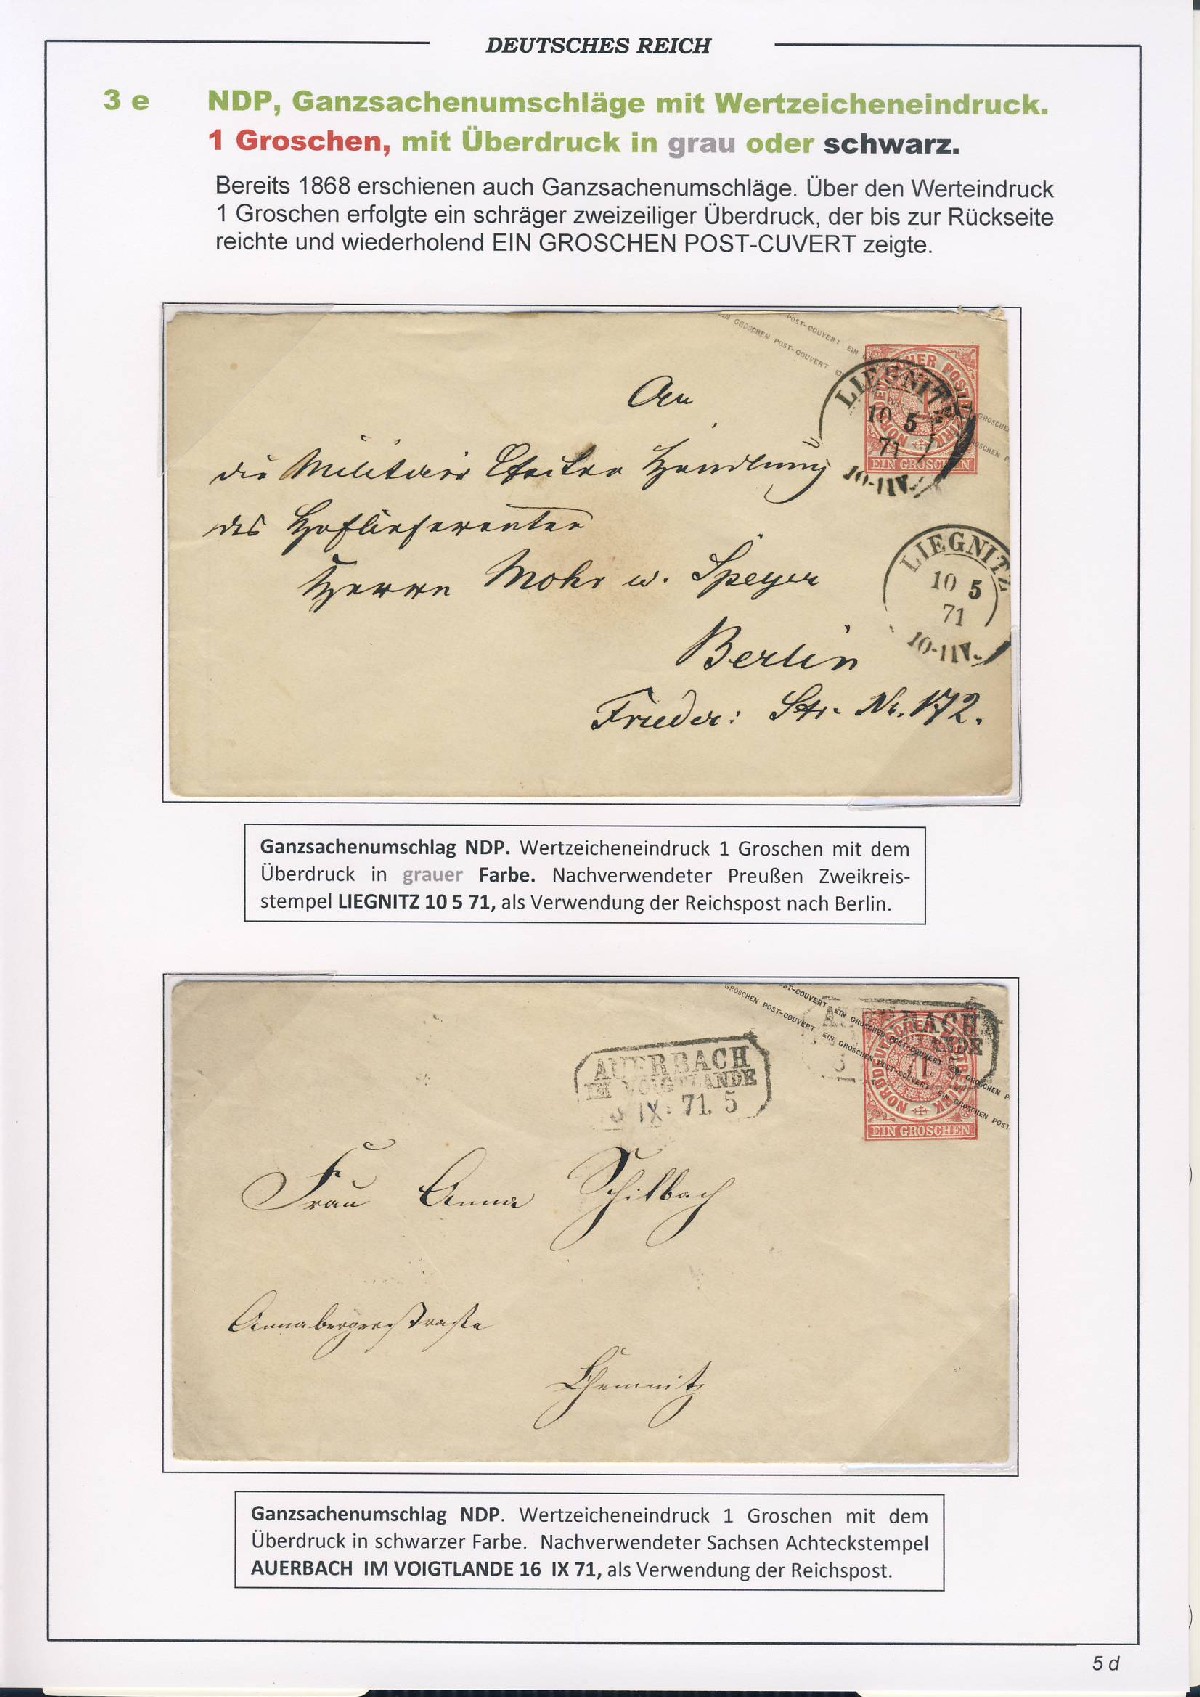 DEUTSCHES REICH
3 e NDP, Ganzsachenumschläge mit Wertzeicheneindruck.
1 Groschen, mit Überdruck in grau oder schwarz.
Bereits 1868 erschienen auch Ganzsachenumschläge. Über den Werteindruck
1 Groschen erfolgte ein schräger zweizeiliger Überdruck, der bis zur Rückseite
reichte und wiederholend EIN GROSCHEN POST-CUVERT zeigte.
LIEGNITZ
10 5
71
EIN GROSCHEN
An
die Militair Effecten Handlung
des Hoflieferanten
Herrn Mohr u. Speyer
Berlin
Frieder: Str. Nr. 172.
LIEGNITZ
10 5
71
Ganzsachenumschlag NDP. Wertzeicheneindruck 1 Groschen mit dem
Überdruck in grauer Farbe. Nachverwendeter Preußen Zweikreis-
stempel LIEGNITZ 10 5 71, als Verwendung der Reichspost nach Berlin.
EIN GROSCHEN
AUERBACH
IM VOIGTLANDE
IX 71. 5
Frau Anna Schilbach
Annabergerstraße
Chemnitz
Ganzsachenumschlag NDP. Wertzeicheneindruck 1 Groschen mit dem
Überdruck in schwarzer Farbe. Nachverwendeter Sachsen Achteckstempel
AUERBACH IM VOIGTLANDE 16 IX 71, als Verwendung der Reichspost.
5 d